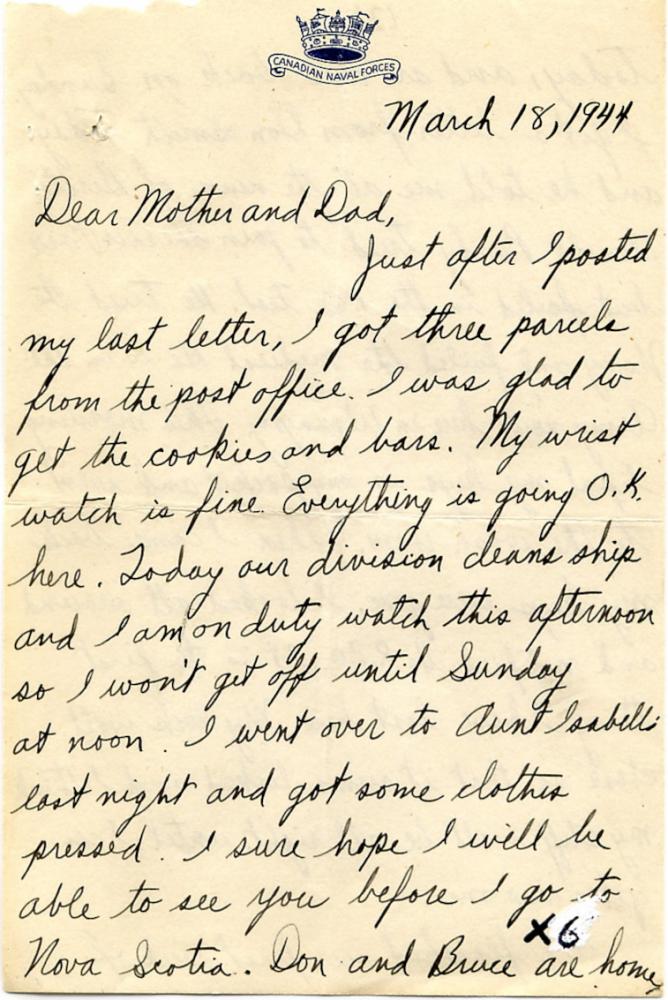 CANADIAN NAVAL FORCES
March 18, 1944
Dear Mother and Dad,
Just after I posted
my last letter, I got three parcels
from the post office. I was glad to
get the cookies and bars. My wrist
watch is fine. Everything is going O.K.
here. Today our division cleans ship
and I am on duty watch this afternoon
so I won't get off until Sunday
at noon. I went over to Aunt Isabell's
last night and got some clothes
pressed. I sure hope I will be
able to see you before I go to
x6
Nova Scotia. Don and Bruce are home